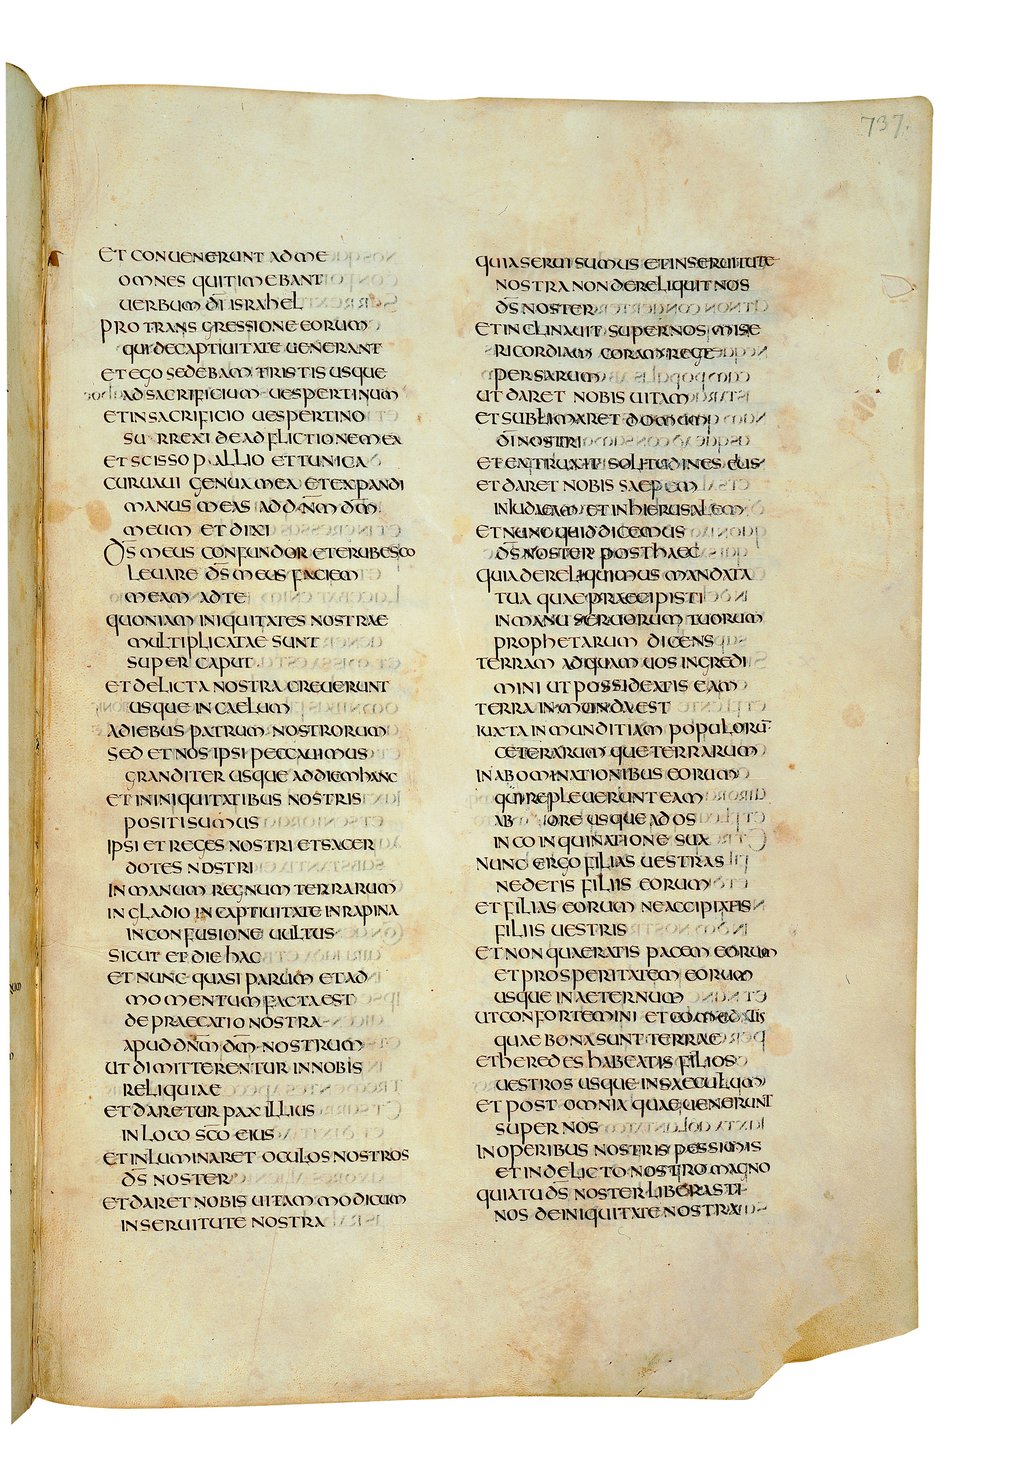 737.
ET CONUENERUNT AD ME
OMNES QUI TIMEBANT
UERBUM DĪ ISRAHEL
PRO TRANSGRESSIONE EORUM
QUI DE CAPTIUITATE UENERANT
ET EGO SEDEBAM TRISTIS USQUE
AD SACRIFICIUM UESPERTINUM
ET IN SACRIFICIO UESPERTINO
SURREXI DE ADFLICTIONE MEA
ET SCISSO PALLIO ET TUNICA
CURUAUI GENUA MEA ET EXPANDI
MANUS MEAS AD DN̄M DM̄
MEUM ET DIXI
DS̄ MEUS CONFUNDOR ET ERUBESCO
LEUARE DS̄ MEUS FACIEM
MEAM AD TE
QUONIAM INIQUITATES NOSTRAE
MULTIPLICATAE SUNT
SUPER CAPUT
ET DELICTA NOSTRA CREUERUNT
USQUE IN CAELUM
A DIEBUS PATRUM NOSTRORUM
SED ET NOS IPSI PECCAUIMUS
GRANDITER USQUE AD DIEM HANC
ET IN INIQUITATIBUS NOSTRIS
POSITI SUMUS
IPSI ET REGES NOSTRI ET SACER
DOTES NOSTRI
IN MANUM REGNUM TERRARUM
IN GLADIO IN CAPTIUITATE IN RAPINA
IN CONFUSIONE UULTUS
SICUT ET DIE HAC
ET NUNC QUASI PARUM ET AD
MOMENTUM FACTA EST
DEPRAECATIO NOSTRA
APUD DN̄M DM̄ NOSTRUM
UT DIMITTERENTUR IN NOBIS
RELIQUIAE
ET DARETUR PAX ILLIUS
IN LOCO SC̄O EIUS
ET INLUMINARET OCULOS NOSTROS
DS̄ NOSTER
ET DARET NOBIS UITAM MODICUM
IN SERUITUTE NOSTRA
QUIA SERUI SUMUS ET IN SERUITUTE
NOSTRA NON DERELIQUIT NOS
DS̄ NOSTER
ET INCLINAUIT SUPER NOS MISE
RICORDIAM CORAM REGE
PERSARUM
UT DARET NOBIS UITAM
ET SUBLIMARET DOMUM
DĪ NOSTRI
ET EXTRUXIT SOLITUDINES EIUS
ET DARET NOBIS SAEPEM
IN IUDAEAM ET IN HIERUSALEM
ET NUNC QUID DICEMUS
DS̄ NOSTER POST HAEC
QUIA DERELIQUIMUS MANDATA
TUA QUAE PRAECIPISTI
IN MANU SERUORUM TUORUM
PROPHETARUM DICENS
TERRAM AD QUAM UOS INGREDI
MINI UT POSSIDEATIS EAM
TERRA INMUNDA EST
IUXTA INMUNDITIAM POPULORŪ
CETERARUM QUE TERRARUM
IN ABOMINATIONIBUS EORUM
QUI REPLEUERUNT EAM
AB ORE USQUE AD OS
IN COINQUINATIONE SUA
NUNC ERGO FILIAS UESTRAS
NE DETIS FILIIS EORUM
ET FILIAS EORUM NE ACCIPIATIS
FILIIS UESTRIS
ET NON QUAERATIS PACEM EORUM
ET PROSPERITATEM EORUM
USQUE IN AETERNUM
UT CONFORTEMINI ET COMEDATIS
QUAE BONA SUNT TERRAE
ET HEREDES HABEATIS FILIOS
UESTROS USQUE IN SAECULUM
ET POST OMNIA QUAE UENERUNT
SUPER NOS
IN OPERIBUS NOSTRIS PESSIMIS
ET IN DELICTO NOSTRO MAGNO
QUIA TU DS̄ NOSTER LIBERASTI
NOS DE INIQUITATE NOSTRA